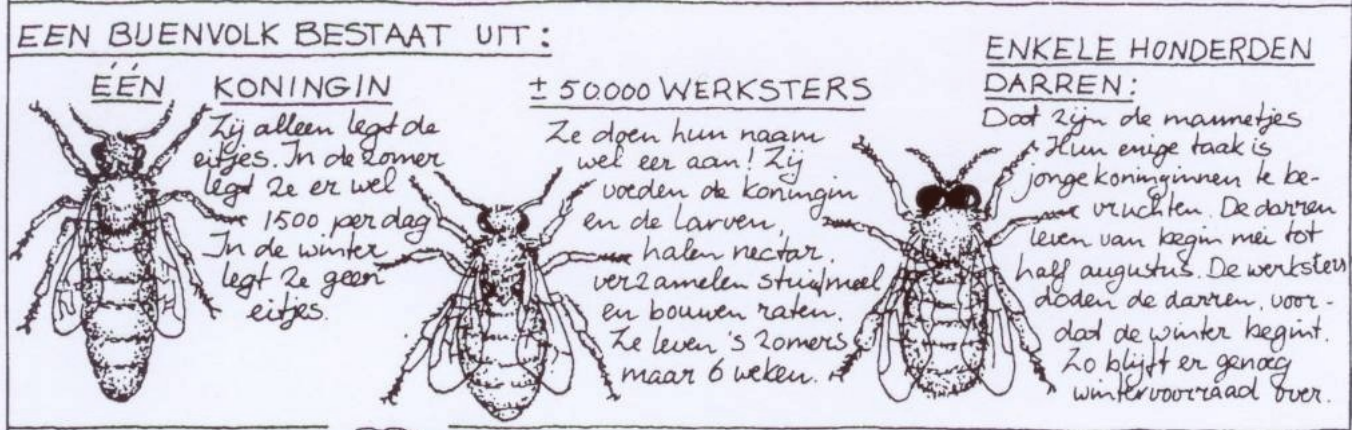 EEN BIJENVOLK BESTAAT UIT:
ÉÉN KONINGIN
Zij alleen legt de
eitjes. In de zomer
legt ze er wel
1500 per dag
In de winter
legt ze geen
eitjes.
± 50.000 WERKSTERS
Ze doen hun naam
wel eer aan! Zij
voeden de koningin
en de larven,
halen nectar,
verzamelen stuifmeel
en bouwen raten.
Ze leven 's zomers
maar 6 weken.
ENKELE HONDERDEN
DARREN:
Dat zijn de mannetjes
Hun enige taak is
jonge koninginnen te be-
vruchten. De darren
leven van begin mei tot
half augustus. De werksters
doden de darren, voor-
dat de winter begint.
Zo blijft er genoeg
wintervoorraad over.